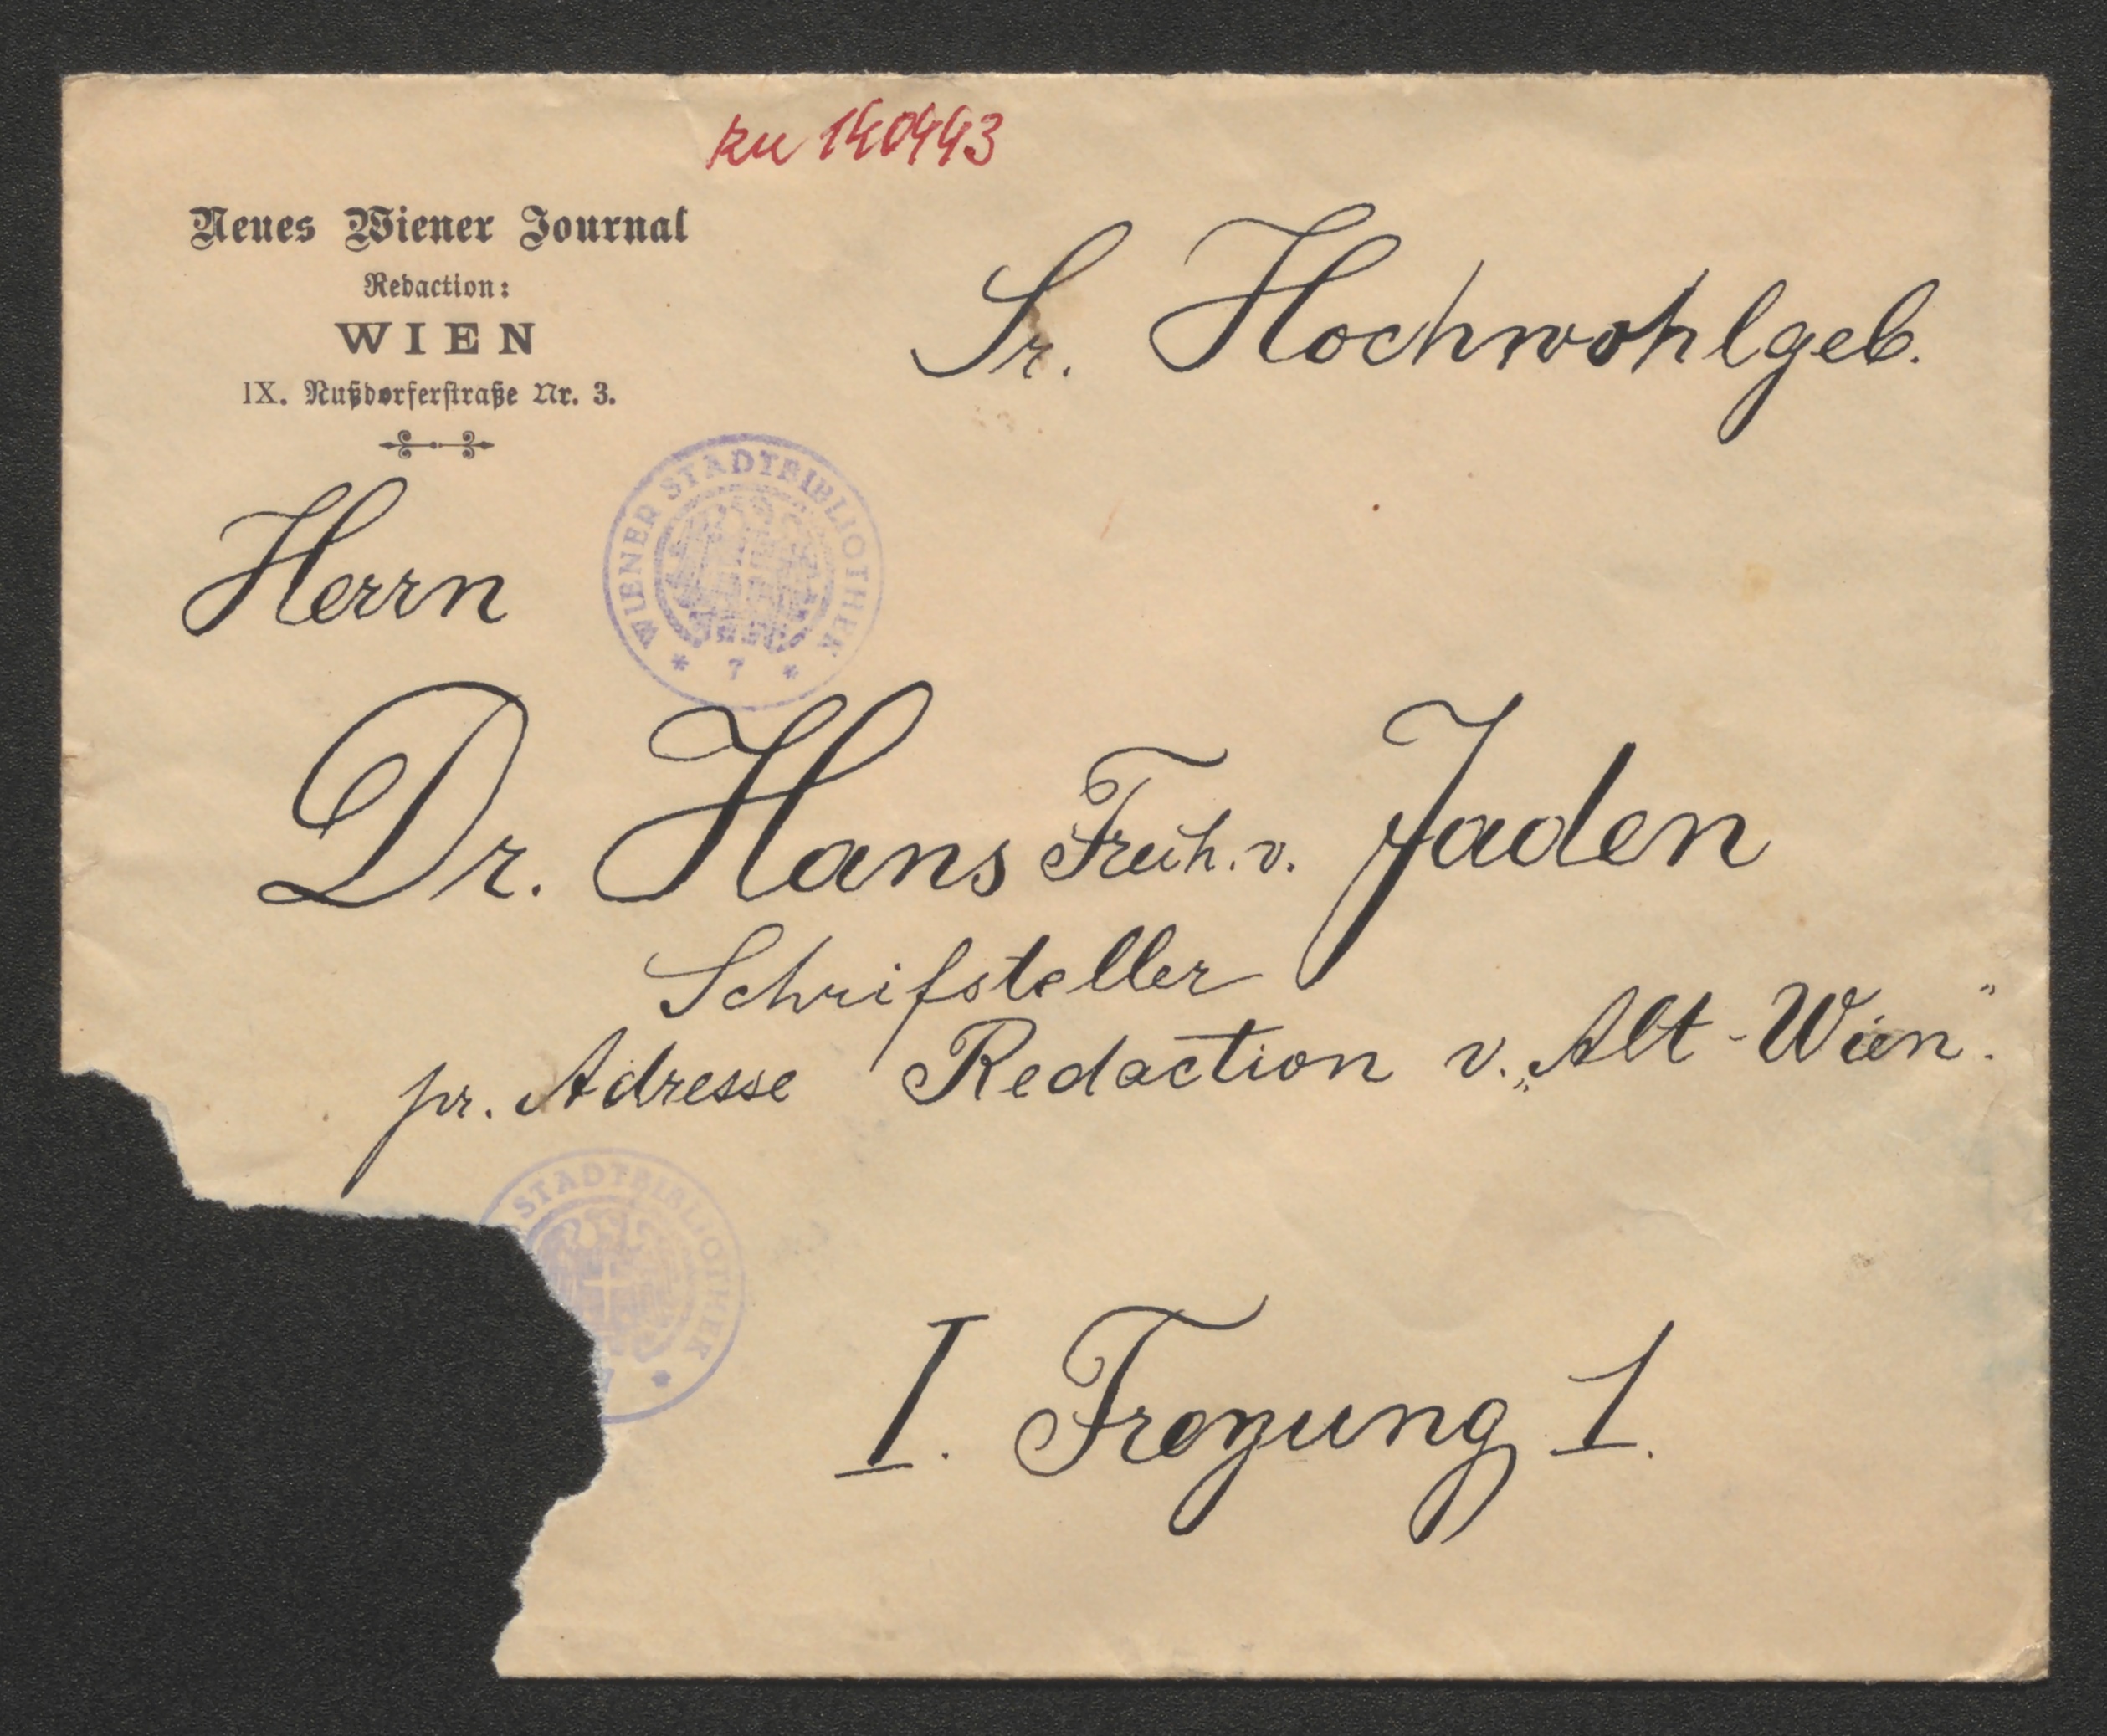 zu 140443
Neues Wiener Journal
Redaction:
WIEN
IX. Nußdorferstraße Nr. 3.
Sr. Hochwohlgeb.
Herrn
WIENER STADTBIBLIOTHEK
* 7 *
Dr. Hans Freih. v. Jaden
Schrifsteller
pr. Adresse Redaction v. „Alt-Wien".
STADTBIBLIOTHEK
7 *
I. Freyung 1.